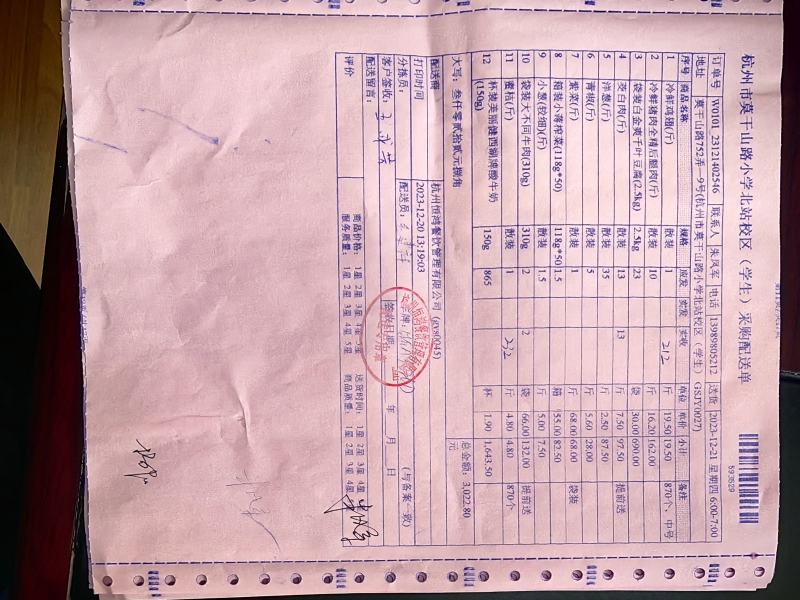 杭州市莫干山路小学北站校区（学生）采购配送单
593529
订单号 W0101_23121402546 联系人 朱凤军 电话 13989805212 送货 2023-12-21 星期四 6:00-7:00
地址 莫干山路752弄一9号(杭州市莫干山路小学北站校区（学生）GSJY0027)
序号 商品名称 规格 应发 实发 实收 单位 单价 小计 备注
1 冷鲜鸡翅(斤) 散装 1 212 斤 19.50 19.50 870个，中号
2 冷鲜猪肉全精后腿肉(斤) 散装 10 斤 16.20 162.00
3 袋装白金爽千叶豆腐(2.5kg) 2.5kg 23 袋 30.00 690.00
4 茭白肉(斤) 散装 13 13 斤 7.50 97.50 提前送
5 洋葱(斤) 散装 35 斤 2.50 87.50
6 青椒(斤) 散装 5 斤 5.60 28.00
7 紫菜(斤) 散装 1 斤 68.00 68.00 袋装
8 箱装小落榨菜(118g*50) 118g*50 1.5 箱 55.00 82.50
9 小葱(较细)(斤) 散装 1.5 斤 5.00 7.50
10 袋装大不同牛肉(310g) 310g 2 2 袋 66.00 132.00 提前送
11 蜜桔(斤) 散装 1 232 斤 4.80 4.80 870个
12 杯装美丽健西湖牌酸牛奶(150g) 150g 865 杯 1.90 1,643.50
大写：叁仟零贰拾贰元捌角 总金额：3,022.80元
配送商 杭州恒鸿餐饮管理有限公司 (gys0045)
打印时间 2023-12-20 13:19:03
分拣员： 配送员： 车牌： (与备案一致)
客户签收： 签收日期 年 月 日
配送留言：
评价 商品价格：1星 2星 3星 4星 5星 送货时间：1星 2星 3星 4星
服务质量：1星 2星 3星 4星 5星 商品质量：1星 2星 3星 4星